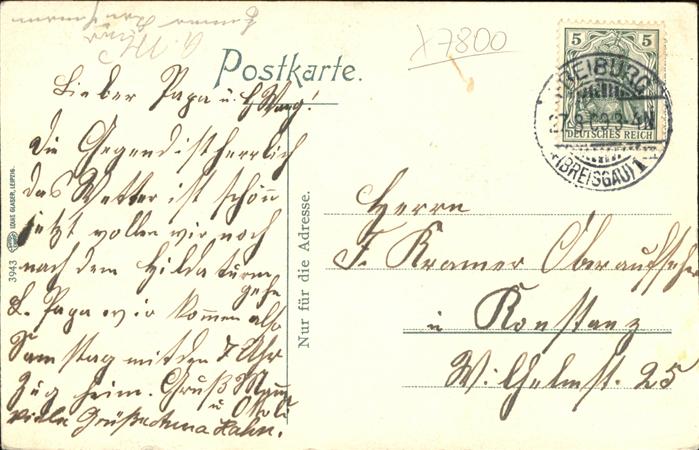 x7800
Postkarte.
5 5
DEUTSCHES REICH
FREIBURG
(BREISGAU) 1
Lieber Papa u.
die Gegend ist herrlich
das Wetter ist schön
jetzt wollen wir noch
nach dem Hilda turm
gehe
L. Papa wir kommen also
Samstag mit den 7 Uhr
Zug heim. Gruß Mama
u
viele Grüße Anna Hahn.
3943
LOUIS GLASER, LEIPZIG.
Nur für die Adresse.
Herrn
F. Kramer Oberaufseher
in Konstanz
Wilhelmst. 25